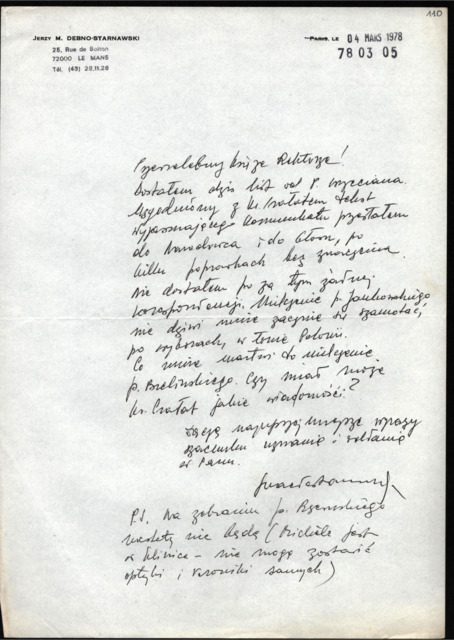 110
JERZY M. DEBNO-STARNAWSKI
25, Rue de
72000 LE MANS
Tél. (43) 28.11.28
PARIS, LE 04 MARS 1978
78 03 05
Przewielebny Księże Rektorze!
Dostałem dziś list od P.
Uzgodniony z Ks. Crałatem tekst
wyjaśniającego komunikatu przesłałem
do Narodowca i do Głosu, po
kilku poprawkach bez znaczenia.
Nie dostałem po za tym żadnej
korespondencji. Milczenie p. Jankowskiego
nie dziwi mnie zacznie się szamotać,
po wyborach, w łonie Polonii.
Co mnie martwi to milczenie
p. Bielińskiego. Czy miał może
Ks. Crałat jakie wiadomości?
Łączę najuprzejmiejsze wyrazy
szacunku uznania i oddania
w Panu.
P.S. Na zebraniu p. Rzewuskiego
niestety nie będę (Michèle jest
w klinice – nie mogę zostawić
optyki i Weroniki samych)